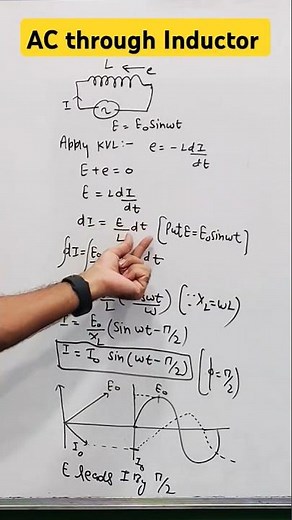 AC through Inductor
L e
I
E = E₀ sinωt
Apply KVL:- e = -L dI/dt
E + e = 0
E = L dI/dt
dI = E/L dt [Put E = E₀ sinωt]
∫dI = ∫E₀ dt
(∵ X_L = ωL)
I = E₀/X_L (sin ωt - π/2)
I = I₀ sin (ωt - π/2) (φ = π/2)
E₀ E₀
I₀ I₀
E leads I by π/2